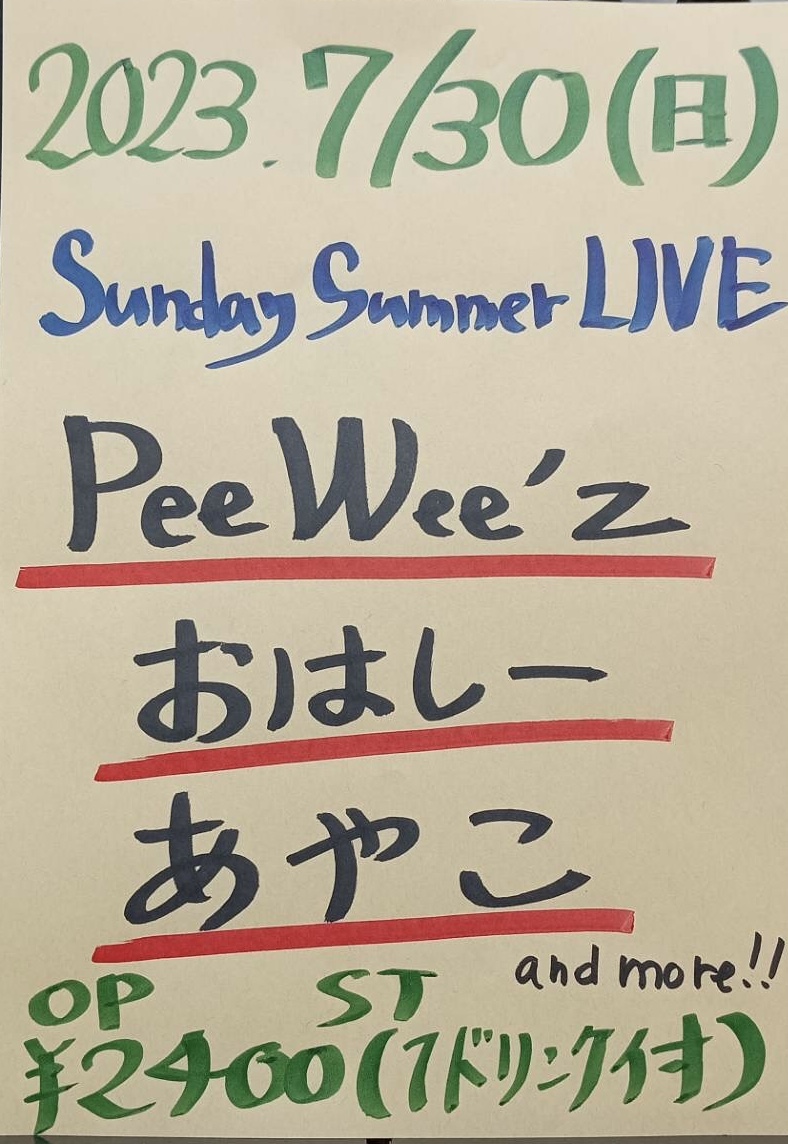 2023.7/30(日)
Sunday Summer LIVE
PeeWee'z
おはしー
あやこ
and more!!
OP ST
¥2400(1ドリンク付)